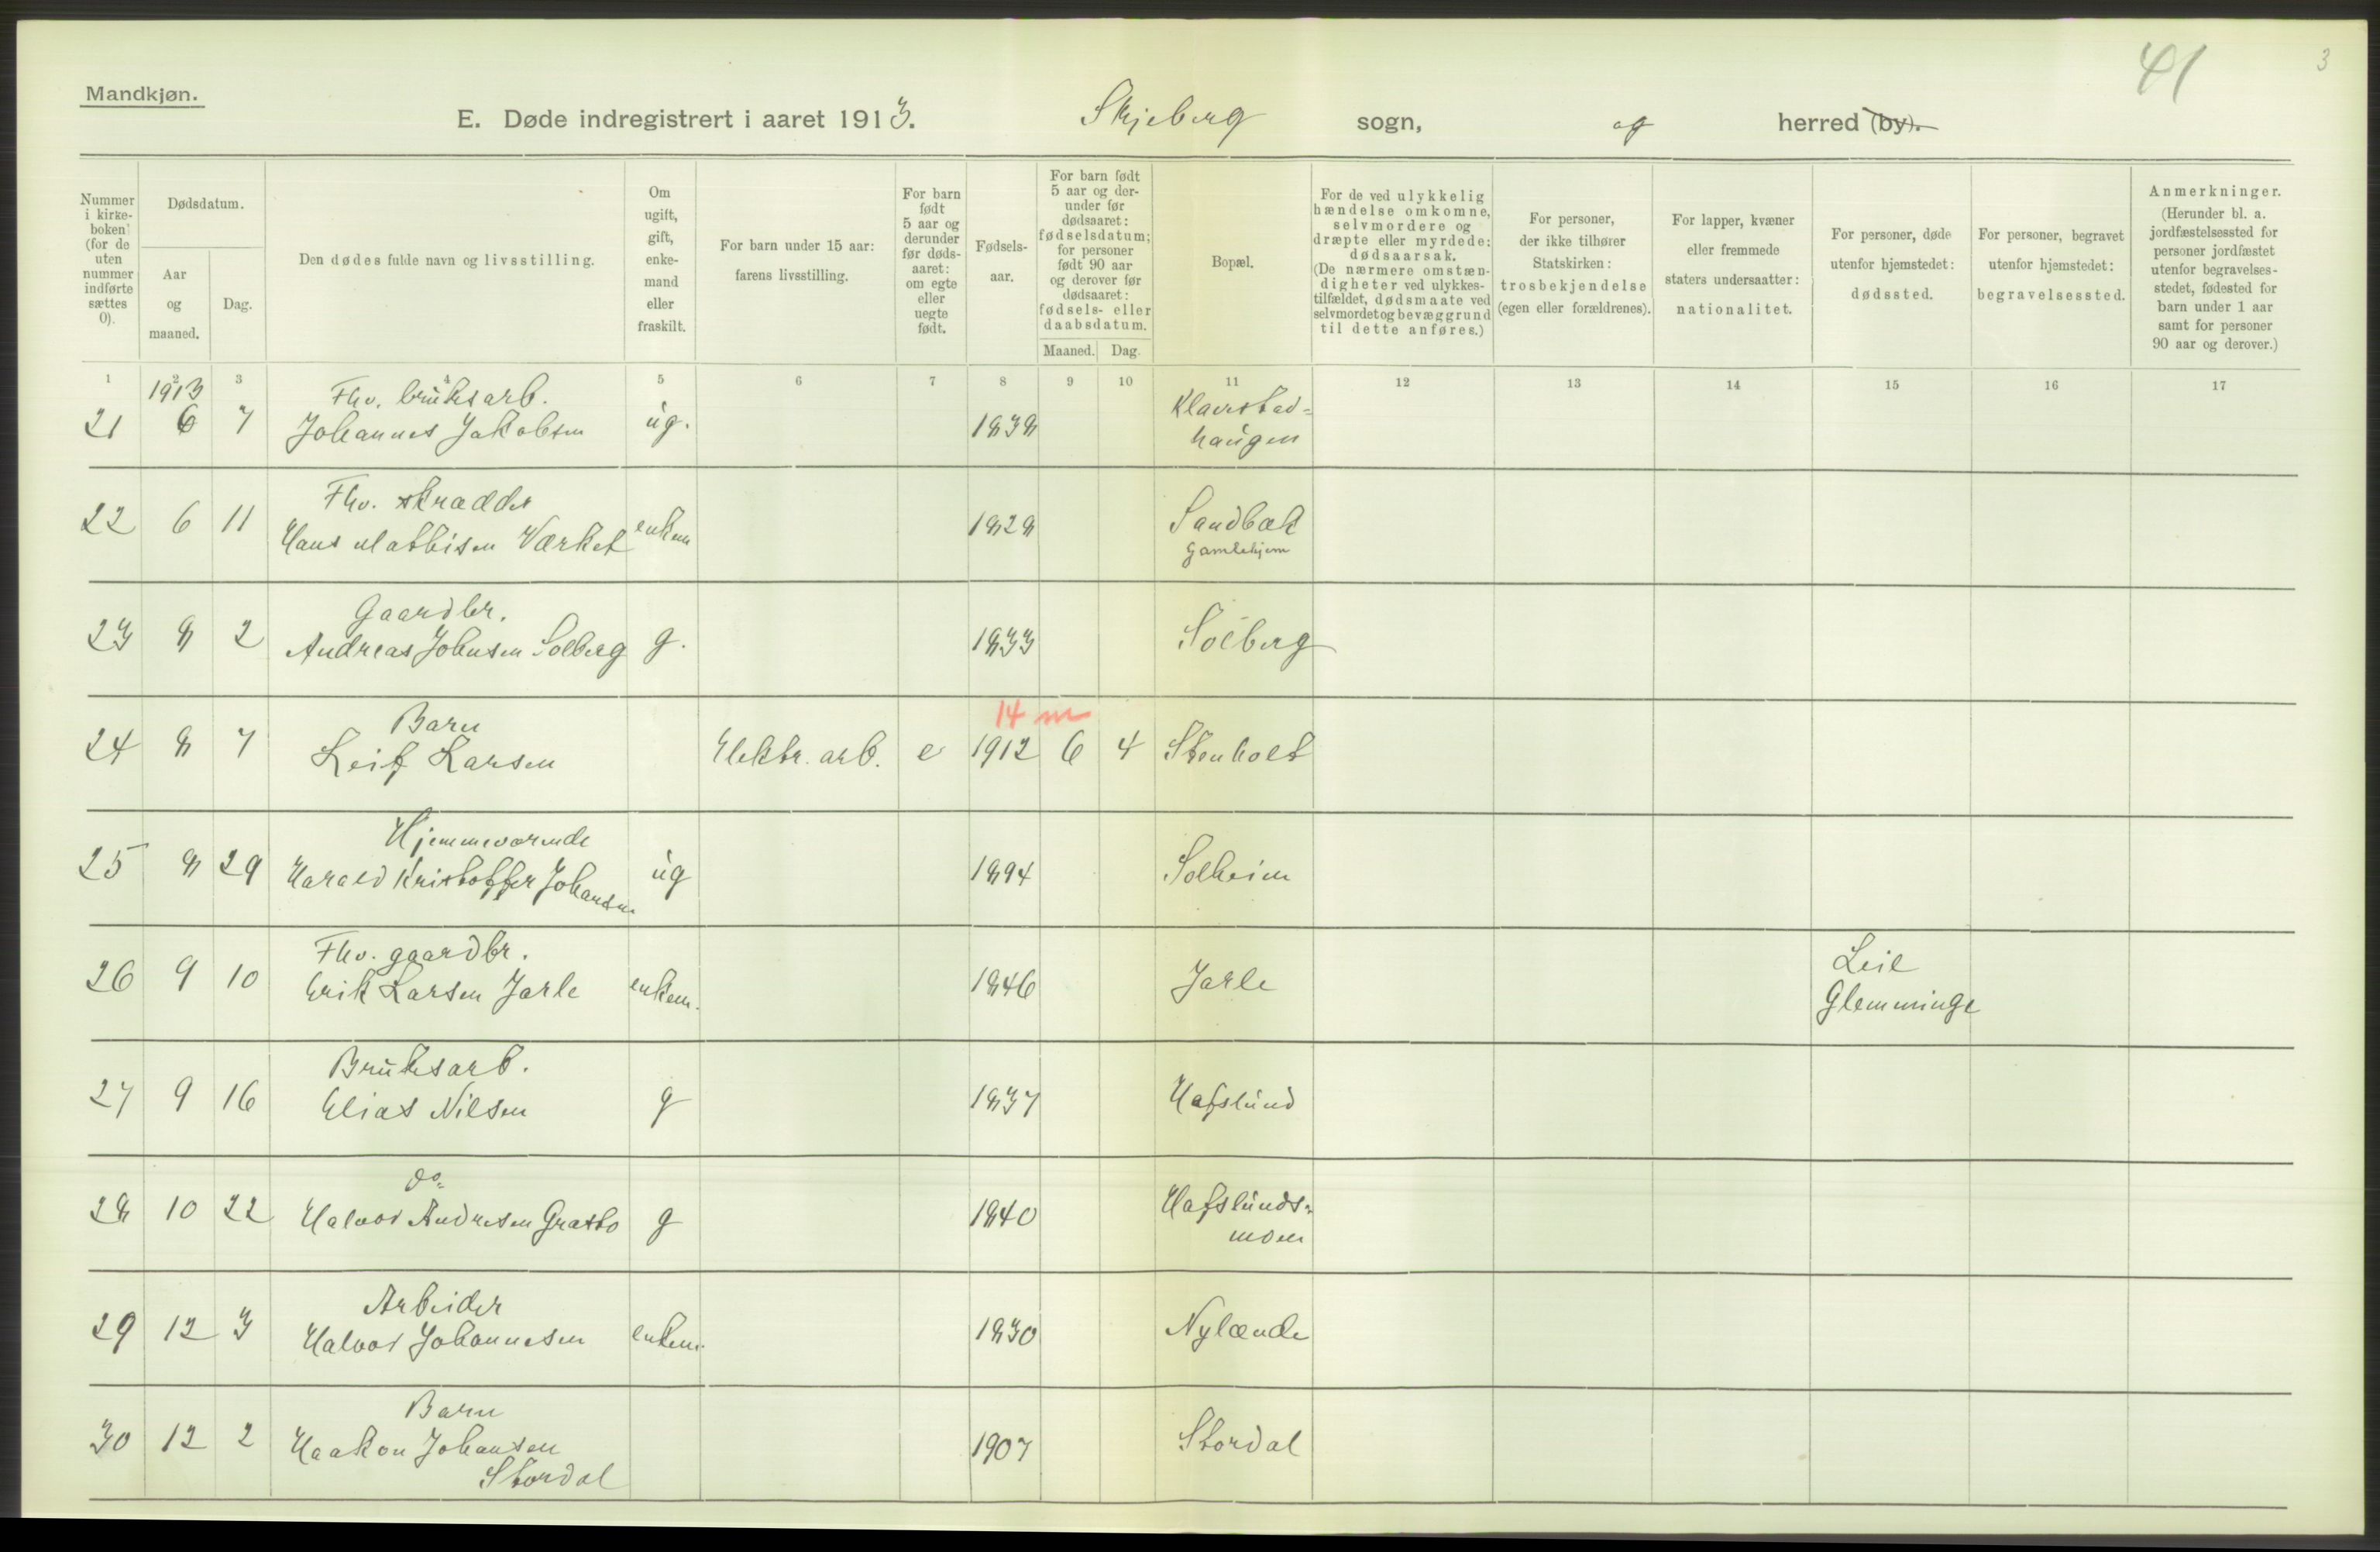 Mandkjøn.
41
3
E. Døde indregistrert i aaret 1913. Skjeberg sogn, og herred (by).
Nummer i kirke-boken (for de uten nummer indførte sættes 0).
Dødsdatum.
Aar og maaned.
Dag.
Den dødes fulde navn og livsstilling.
Om ugift, gift, enke-mand eller fraskilt.
For barn under 15 aar: farens livsstilling.
For barn født 5 aar og derunder før døds-aaret: om egte eller uegte født.
Fødsels-aar.
For barn født 5 aar og der-under før dødsaaret: fødselsdatum; for personer født 90 aar og derover før dødsaaret: fødsels- eller daabsdatum.
Maaned. Dag.
Bopæl.
For de ved ulykkelig hændelse omkomne, selvmordere og dræpte eller myrdede: dødsaarsak. (De nærmere omstæn-digheter ved ulykkes-tilfældet, dødsmaate ved selvmordet og bevæggrund til dette anføres.)
For personer, der ikke tilhører Statskirken: trosbekjendelse (egen eller forældrenes).
For lapper, kvæner eller fremmede staters undersaatter: nationalitet.
For personer, døde utenfor hjemstedet: dødssted.
For personer, begravet utenfor hjemstedet: begravelsessted.
Anmerkninger. (Herunder bl. a. jordfæstelsessted for personer jordfæstet utenfor begravelses-stedet, fødested for barn under 1 aar samt for personer 90 aar og derover.)
1 2 3 4 5 6 7 8 9 10 11 12 13 14 15 16 17
1913 Fhv. bruksarb. Klavestad-
21 6 7 Johannes Jakobsen ug. 1838 haugen
Fhv. skrædder
22 6 11 Hans Mathisen Værket enkem 1828 Sandbæk
Gamlehjem
Gaardbr.
23 8 2 Andreas Johnsen Solberg g. 1833 Solberg
Barn 14 m
24 8 7 Leif Larsen Elektr. arb. e 1912 6 4 Stenholt
Hjemmeværende
25 8 29 Harald Kristoffer Johansen ug 1894 Solheim
Fhv. gaardbr. Leie
26 9 10 Erik Larsen Jarle enkem. 1846 Jarle Glemminge
Bruksarb.
27 9 16 Elias Nilsen g 1837 Hafslund
do
28 10 22 Halvor Andresen Grasto g 1840 Hafslunds-
moen
Arbeider
29 12 3 Halvor Johannesen enkem. 1830 Nylænde
Barn
30 12 2 Haakon Johansen 1907 Stordal
Stordal